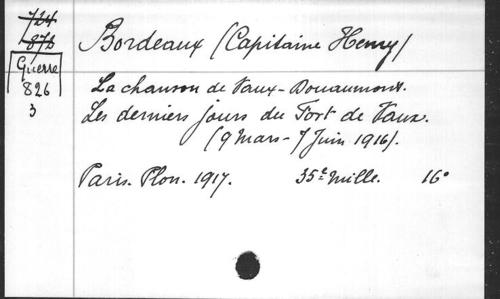 724
876
Guerre
826
3
Bordeaux (Capitaine Henry)
La chanson de Vaux-Douaumont.
Les derniers jours du Fort de Vaux.
(9 Mars - 7 Juin 1916).
Paris. Plon. 1917. 35e Mille. 16°